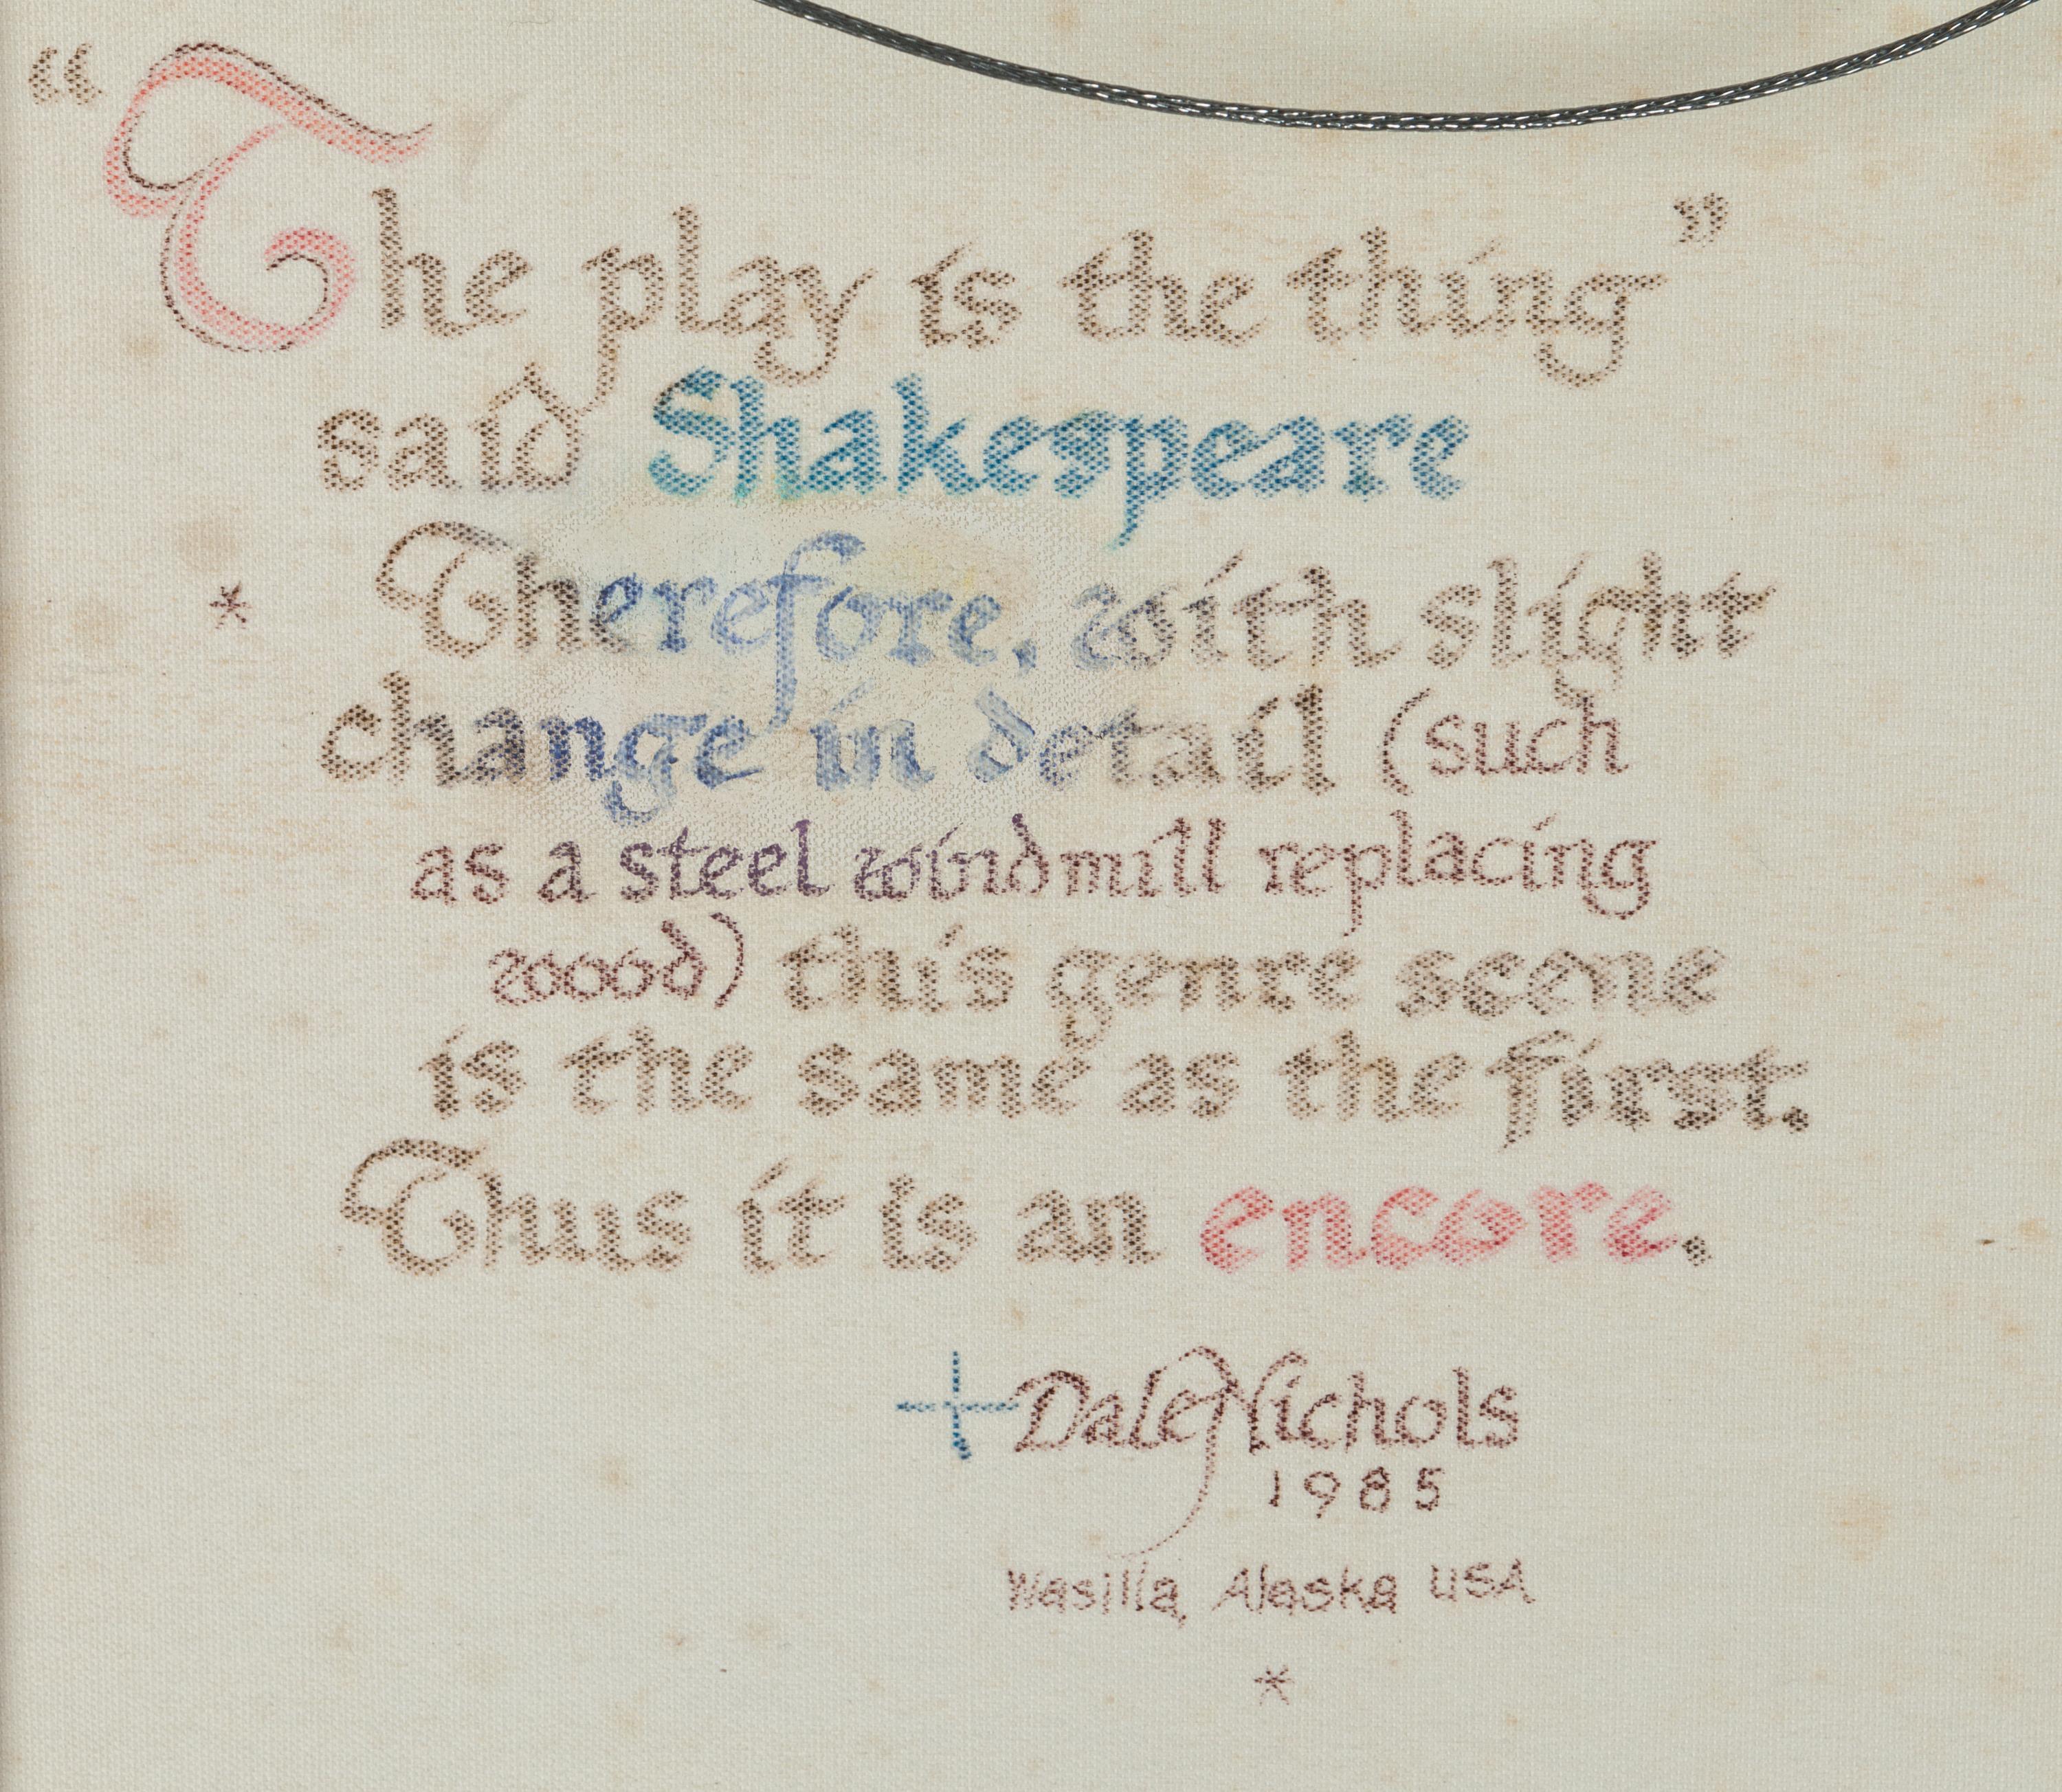 “The play is the thing”
said Shakespeare
* Therefore, with slight
change in detail (such
as a steel windmill replacing
wood) this genre scene
is the same as the first.
Thus it is an encore.
+Dale Nichols
1985
Wasilla, Alaska USA
*